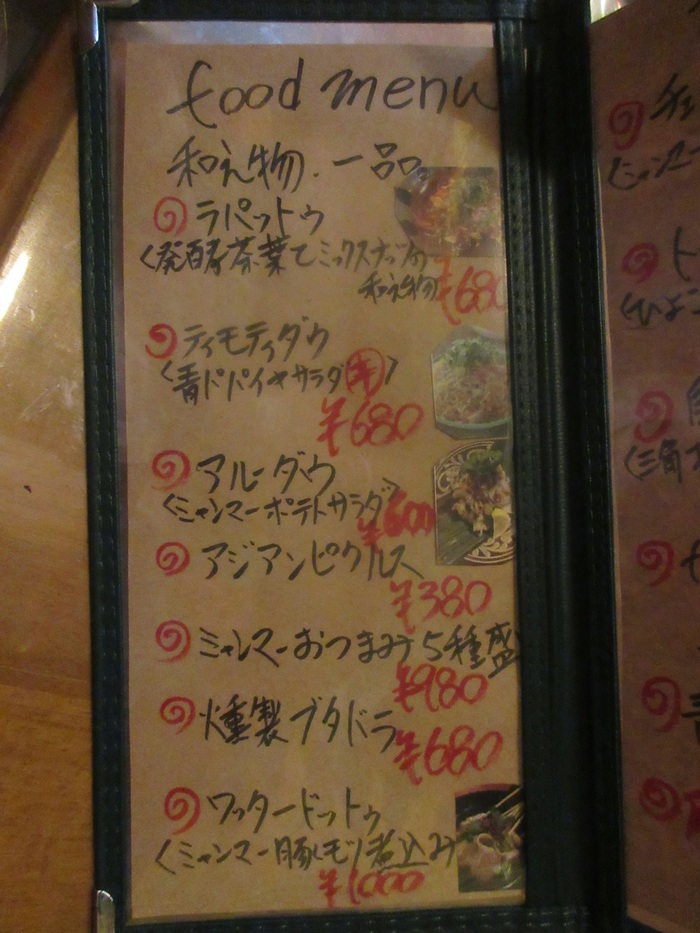 food menu
和え物.一品
ラパットゥ
〈発酵茶葉でミックスナッツの
和え物 ¥680
ティモティダウ
〈青パパイヤサラダ 辛〉
¥680
アルーダウ
〈ミャンマーポテトサラダ〉
¥600
アジアンピクルス
¥380
ミャンマーおつまみ5種盛
¥980
燻製ブタドラ
¥680
ワッタードットゥ
〈ミャンマー豚モツ煮込み
¥1000
〈ミャンマー
ト
〈ひよこ
〈三角